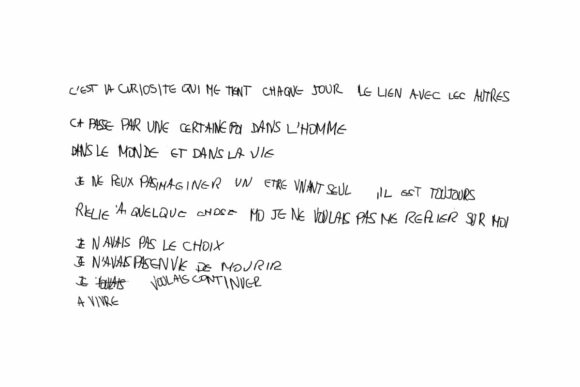 C'EST LA CURIOSITE QUI ME TIENT CHAQUE JOUR LE LIEN AVEC LES AUTRES
CA PASSE PAR UNE CERTAINE FOI DANS L'HOMME
DANS LE MONDE ET DANS LA VIE
JE NE PEUX PAS IMAGINER UN ETRE VIVANT SEUL, IL EST TOUJOURS
RELIE A QUELQUE CHOSE MO JE NE VOULAIS PAS ME REPLIER SUR MOI
JE N'AVAIS PAS LE CHOIX
JE N'AVAIS PAS ENVIE DE MOURIR
JE VOULAIS CONTINUER
A VIVRE